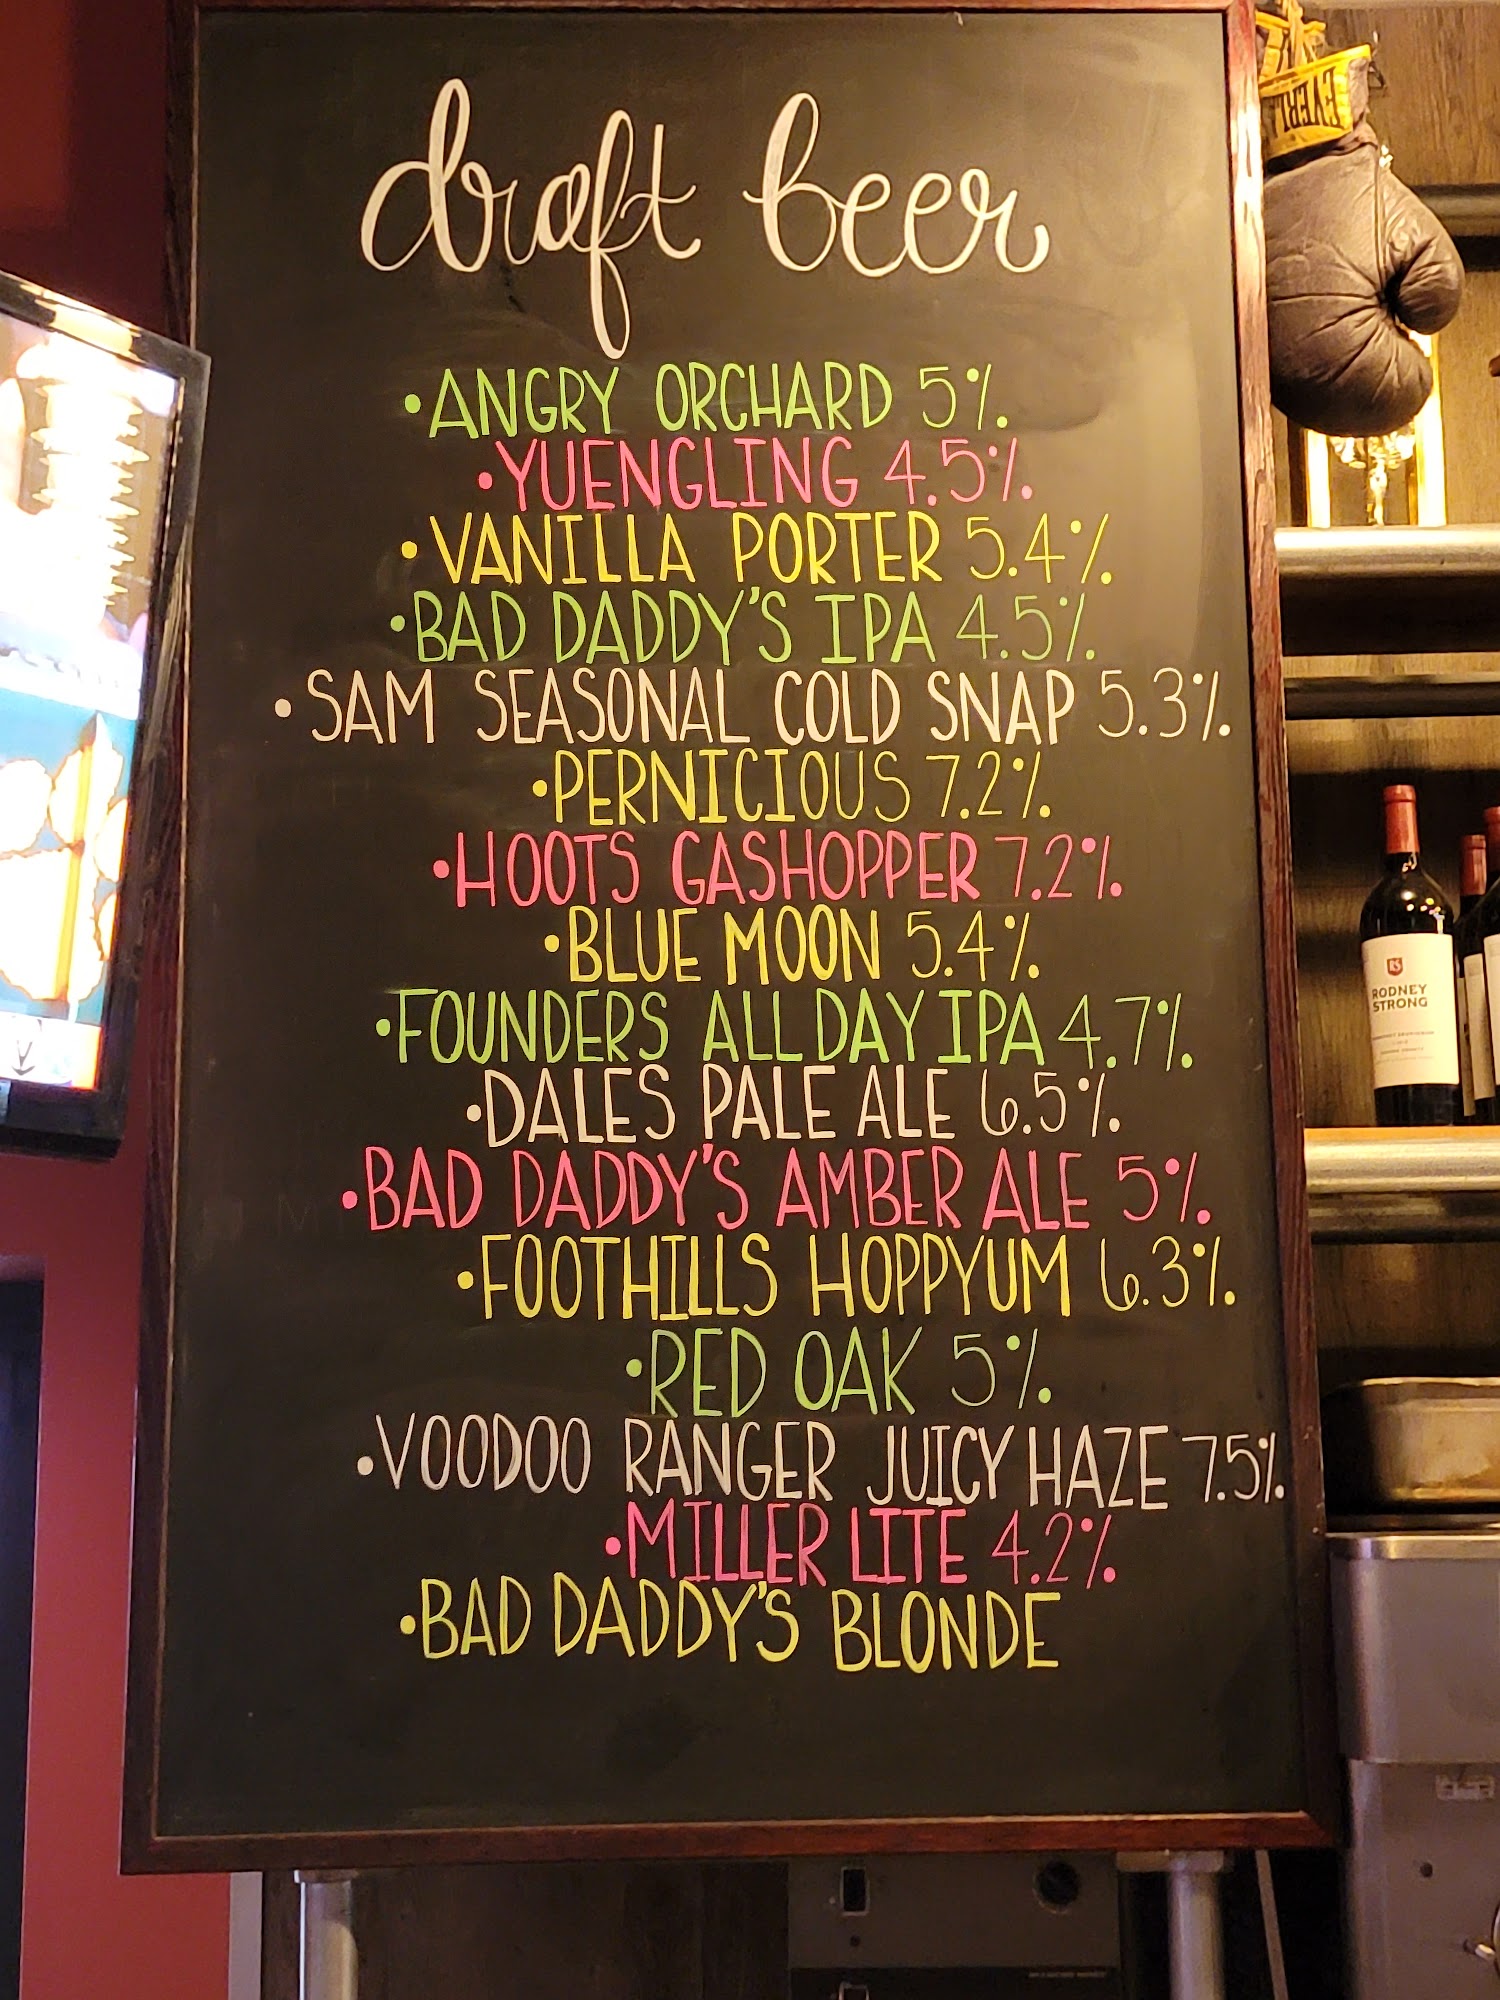 draft beer
•ANGRY ORCHARD 5%
•YUENGLING 4.5%
•VANILLA PORTER 5.4%
•BAD DADDY'S IPA 4.5%
•SAM SEASONAL COLD SNAP 5.3%
•PERNICIOUS 7.2%
•HOOTS GASHOPPER 7.2%
•BLUE MOON 5.4%
•FOUNDERS ALL DAY IPA 4.7%
•DALES PALE ALE 6.5%
•BAD DADDY'S AMBER ALE 5%
•FOOTHILLS HOPPYUM 6.3%
•RED OAK 5%
•VOODOO RANGER JUICY HAZE 7.5%
•MILLER LITE 4.2%
•BAD DADDY'S BLONDE
EVERL
RODNEY
STRONG